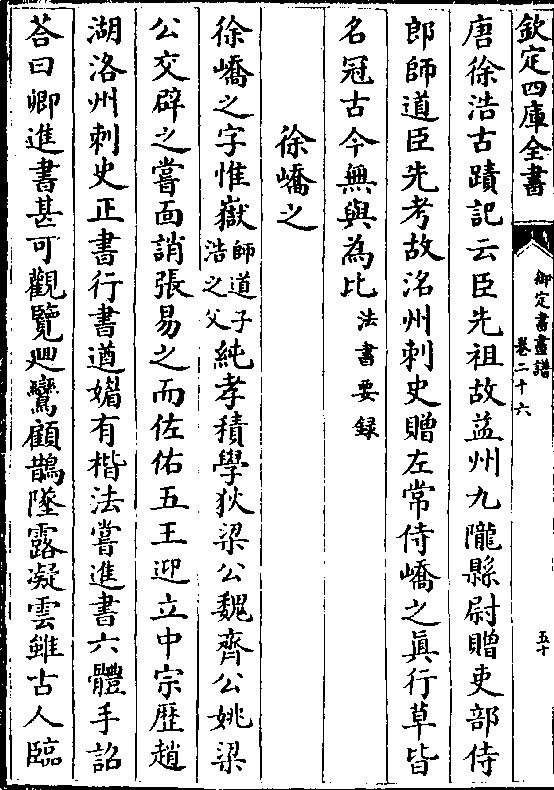 欽定四庫全書
御定書畫譜
卷二十六
五十
唐徐浩古蹟記云臣先祖故益州九隴縣尉贈吏部侍
郎師道臣先考故洺州刺史贈左常侍嶠之真行草皆
名冠古今無與為比法書要録
徐嶠之
徐嶠之字惟嶽師道子浩之父純孝積學狄梁公魏齊公姚梁
公交辟之嘗面誚張易之而佐佑五王迎立中宗歴趙
湖洛州刺史正書行書遒媚有楷法嘗進書六體手詔
荅曰卿進書甚可觀覽𢌞鸞顧鵲墜露凝雲雖古人臨